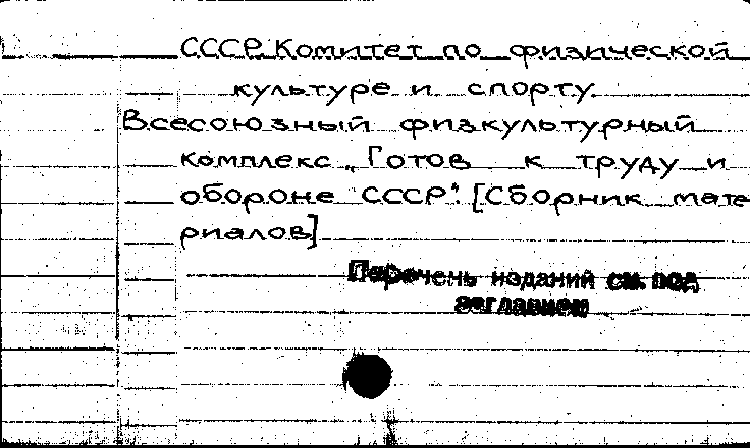 СССР. Комитет по физической
культуре и спорту
Всесоюзный физкультурный
комплекс „Готов к труду и
обороне СССР“. [Сборник мате
риалов]
Перечень изданий см. под
заглавием